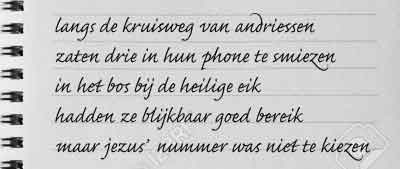 langs de kruisweg van andriessen
zaten drie in hun phone te smiezen
in het bos bij de heilige eik
hadden ze blijkbaar goed bereik
maar jezus' nummer was niet te kiezen